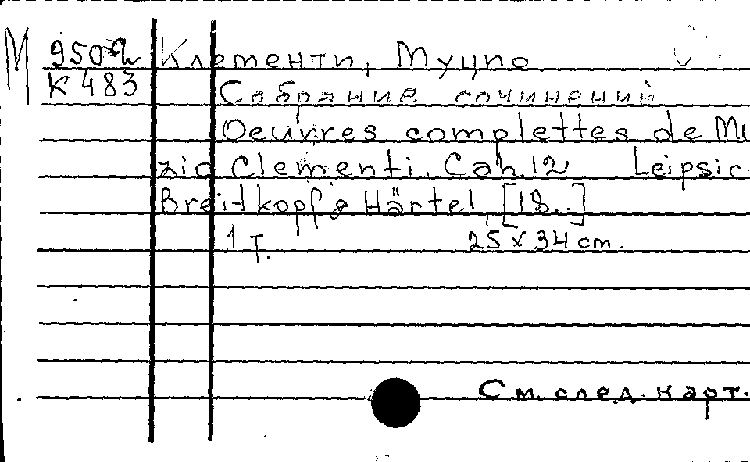 М 950 а Клементи, Муцио
К 483 Собрание сочинений
Oeuvres complettes de Mu
zio Clementi. Cah. 12 Leipsic
Breitkopf & Härtel [18..]
1 т. 25 x 34 cm.
См. след. карт.